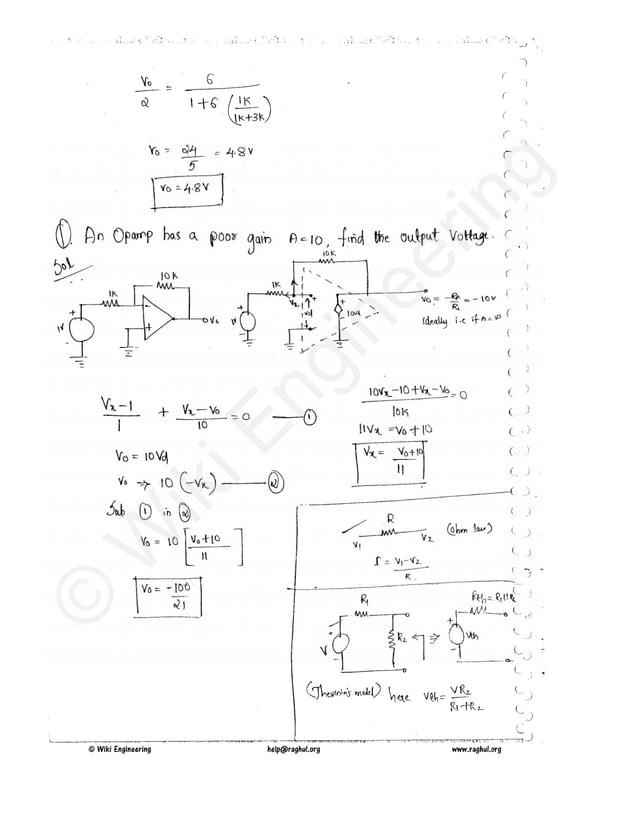 V₀/2 = 6/(1+6(1K/(1K+3K)))
V₀ = 24/5 = 4.8V
V₀ = 4.8V
①. An Opamp has a poor gain A=10, find the output Voltage.
Sol
10K
1K
1V
V₀
10K
1K
Vx
Vd
10Vd
1V
V₀ = -Rf/R₁ = -10V
Ideally i.e if A=∞
(Vx-1)/1 + (Vx-V₀)/10 = 0 — ①
V₀ = 10Vd
V₀ ⇒ 10(-Vx) — ②
Sub ① in ②
V₀ = 10[(V₀+10)/11]
V₀ = -100/21
(10Vx-10+Vx-V₀)/10K = 0
11Vx = V₀+10
Vx = (V₀+10)/11
R
V₁ V₂ (ohm law)
I = (V₁-V₂)/R
R₁
V
R₂
⇒
Rth = R₁||R₂
Vth
(Thevinin's model) here Vth = VR₂/(R₁+R₂)
© Wiki Engineering
© Wiki Engineering help@raghul.org www.raghul.org